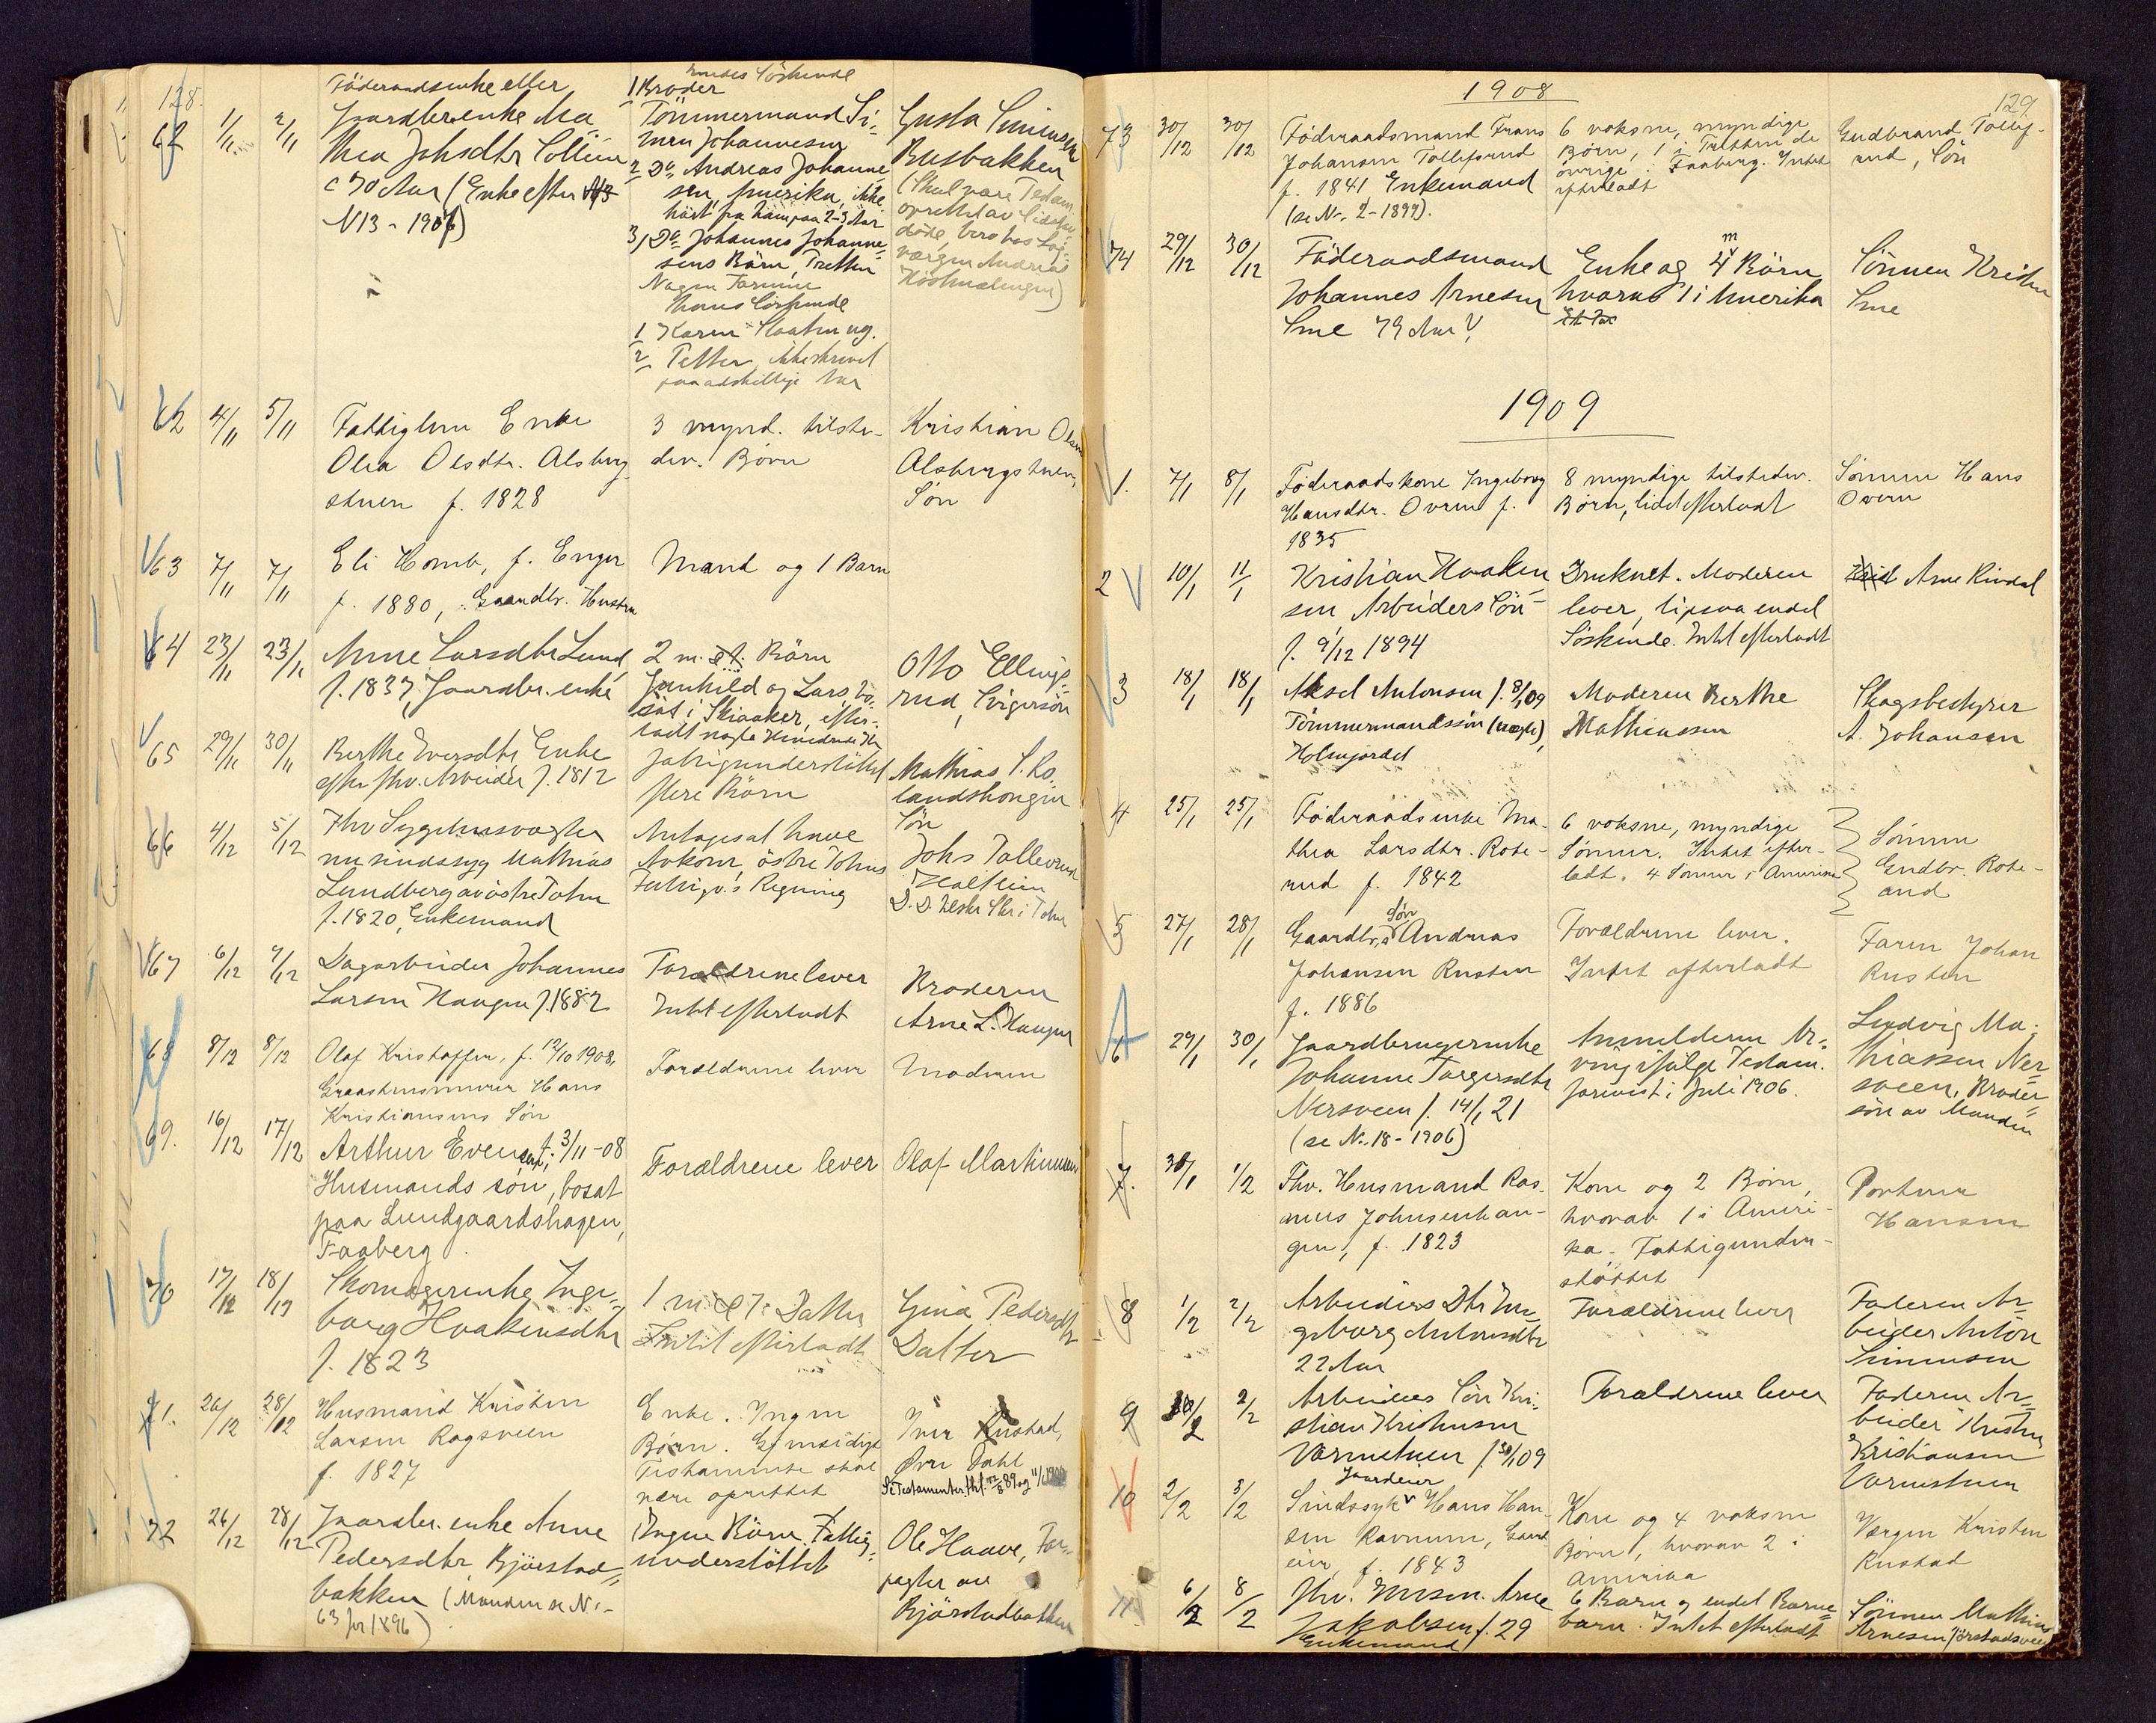 128.
Föderaadsenke eller
62 1/11 2/11 Gaardbrenke Ma
thea Johsdtr Sollien
c 70 Aar (Enke efter
N 13 - 1906)
hendes Söskende
1 Broder
Tömmermand Si-
men Johannesen
2 Do Andreas Johanne
sen, Amerika, ikke
hört fra ham paa 2-3 Aar
3/ Do Johannes Johanne-
sens Börn, Tretten
hans Söskende
1 Karen
2 Petter, ikke skrevet
paa adskillige Aar
Gusta Simensen
Busbakken
(Skal være Testam
62 4/11 5/11 Fattiglem Enke
Olea Olsdtr. Alsberg-
stuen f. 1828
3 mynd. tilste-
dev. Börn
Kristian Olsen
Alsbergstuen,
Søn
63 7/11 7/11 Eli Homb, f. Enger
f. 1880, Gaardbr. Hustru
Mand og 1 Barn
64 23/11 23/11 Anne Larsdtr Lund
f. 1837, Gaardbr. enke
2 m. Börn
Gunhild og Lars, bo-
sat i Skiaaker, efter-
ladt nogle
Otto Ellings-
rud, Svigersön
65 29/11 30/11 Berthe Iversdtr Enke
efter fhv. Arbeider f. 1812
Fattigunderstöttet
flere Börn
Mathias S. Ro-
landshougen
Sön
66 4/12 5/12 Fhv Sygehusvogter
nu sindssyg Mathias
Lundberg av östre Toten
f. 1820, Enkemand
Antages at have
Avkom, östre Totens
Fattigv's Regning
Johs Tollersrud
D. D.
67 6/12 7/12 Dagarbeider Johannes
Larsen Haugen f. 1882
Forældrene lever
Intet efterladt
Broderen
Arne L. Haugen
68 8/12 8/12 Olaf Kristoffer, f. 12/10 1908,
Graastensmurer Hans
Kristiansens Sön
Forældrene lever
Moderen
69. 16/12 17/12 Arthur Evensen, f. 3/11-08
Husmands sön, bosat
paa Lundgaardshagen,
Faaberg.
Forældrene lever
Olaf Martinsen
70 17/12 18/12 Skomagerenke Inge-
borg Haakensdtr
f. 1823
1 m. Datter
Intet efterladt
Gina Pedersdtr
Datter
71. 26/12 28/12 Husmand Kristen
Larsen Rogsveen
f. 1827
Enke. Ingen
Børn. Gjensidigt
Testamente skal
være oprettet
Iver Rustad,
Øvre Dahl
72 26/12 28/12 Gaardbr. enke Anne
Pedersdtr Bjørstad-
bakken (Manden se N.-
63 for 1896)
Ingen Börn. Fattig-
understöttet
Ole Haave, For-
pagter av
Bjørstadbakken
1908
129
73 30/12 30/12 Föderaadsmand Frans
Johansen Tollefsrud
f. 1841 Enkemand
(se Nr. 2 - 1899).
6 voksne, myndige
Børn, 1 i Tretten de
övrige i Faaberg. Intet
efterladt
Gudbrand Tollefs-
rud, Sön
74 29/12 30/12 Föderaadsmand
Johannes Arnesen
Sme 79 Aar
Enke og 4 m Börn
hvorav 1 i Amerika
Sönnen Kristen
Sme
1909
1. 7/1 8/1 Föderaadskone Ingeborg
Hansdtr. Overen f.
1835
8 myndige tilstedev.
Børn, lidet efterladt
Sønnen Hans
Overen
2 10/1 11/1 Kristian Haaken
sen Arbeiders Sön
f. 9/12 1894
Druknet. Moderen
lever, ligesaa endel
Söskende. Intet efterladt
Arne Rindal
3 18/1 18/1 Aksel Antonsen f. 8/1 09
Tömmermandssön (uægte),
Holmejordet
Moderen Berthe
Mathiassen
Skogsbestyrer
A. Johansen
4 25/1 25/1 Föderaadsenke Ma-
thea Larsdtr. Rote-
rud f. 1842
6 voksne, myndige
Sønner. Intet efter-
ladt. 4 Sønner i Amerika
Sønnen
Gudbr. Rote-
rud
5 27/1 28/1 Gaardbr.s Søn Andreas
Johansen Rusten
f. 1886
Forældrene lever.
Intet efterladt
Faren Johan
Rusten
6 29/1 30/1 Gaardbrugerenke
Johanne Torgersdtr
Nersveen f. 14/1 21
(se N. 18 - 1906)
Anmelderen Ar-
ving ifölge Testam.
forevist i Juli 1906.
Ludvig Ma-
thiassen Ner-
sveen, Broder-
sön av Manden
7. 30/1 1/2 Fhv. Husmand Ras-
mus Johnsenhau-
gen, f. 1823
Kone og 2 Børn,
hvorav 1 i Ameri-
ka. Fattigunder-
støttet
Portner
Hansen
8 1/2 2/2 Arbeiders Dtr In-
geborg Antonsdtr
22 Aar
Forældrene lever
Faderen Ar-
beider Anton
Simensen
9 1/2 2/2 Arbeiders Sön Kri-
stian Kristensen
Varmstuen f 30/1 09
Forældrene lever
Faderen Ar-
beider Kristen
Kristiansen
Varmstuen
10 2/2 3/2 Gaardeier
Sindssyk Hans Han-
sen Ravnum, Gaard
eier, f. 1843
Kone og 4 voksne
Børn, hvorav 2 i
Amerika
Værgen Kristen
Rustad
11 6/2 8/2 Fhv. Husm. Arne
Jakobsen f. 29
Enkemand
6 Barn og endel Barne-
barn. Intet efterladt
Sönnen Mathias
Arnesen Jörstadsveen